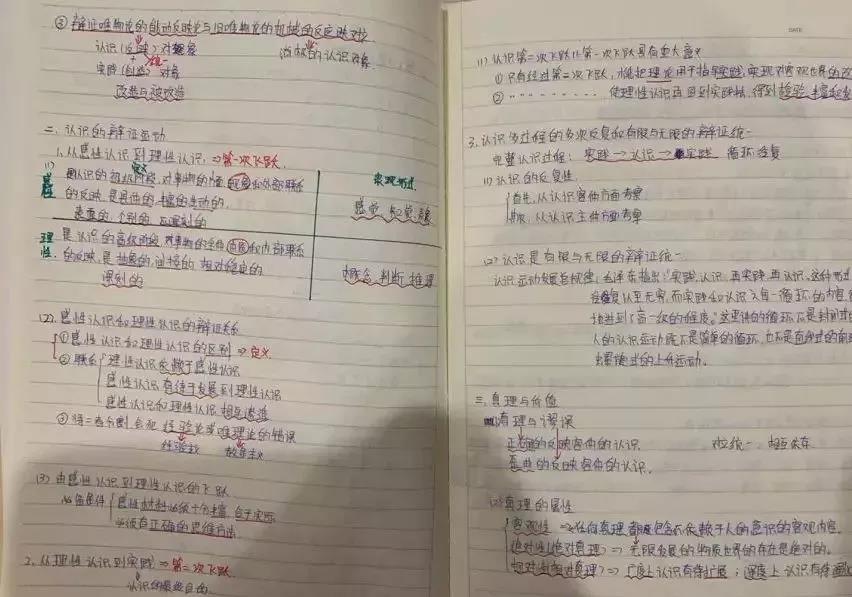 ③ 辩证唯物论的能动反映论与旧唯物论的机械的反应映对比
认识(反映)对象
治病的认识对象
+ 统一
实践(创造)对象
改造与被改造
二、认识的辩证运动
1、从感性认识到理性认识,⇒第一次飞跃.
(1) 定义
感性
是认识的初级阶段,对事物的现象和外部联系
的反映,是具体的、丰富的生动的,
表面的、个别的
表现形式
感觉、知觉、表象
理性.
是认识的高级阶段,对事物的本质和内部联系
的反映,是抽象的,间接的 相对稳定的
深刻的
概念、判断、推理
(2). 感性认识和理性认识的辩证关系
①感性认识和理性认识的区别 ⇒ 定义.
②联系 理性认识依赖于感性认识
感性认识有待于发展到理性认识
感性认识和理性认识相互渗透
③将二者分割,会犯经验论或唯理论的错误
经验主义 教条主义
(3) 由感性认识到理性认识的飞跃
必备条件 感性材料必须十分丰富,合于实际
必须有正确的思维方法
2、从理性认识到实践 ⇒ 第二次飞跃.
认识的最终目的.
DATE
(1) 认识第二次飞跃比第一次飞跃具有重大意义
① 只有经过第二次飞跃,才能把理论用于指导实践,实现对客观世界的改
② ………… 使理性认识再回到实践中,得到检验、丰富和发
3、认识多过程的多次反复和有限与无限的辩证统一
完整认识过程: 实践→认识→实践 循环反复
(1) 认识的反复性
首先,从认识客体方面考察
其次,从认识主体方面考察
(2) 认识是有限与无限的辩证统一
认识运动发展总规律,毛泽东指出:"实践、认识、再实践、再认识,这种形式
循环往复以至无穷,而实践和认识之每一循环的内容
都进到了高一级的程度。"这里讲的循环不是封闭式的
人的认识运动既不是简单的循环,也不是直线式的前
螺旋式的上升运动.
三、真理与价值
真理与谬误
正确的反映客体的认识. 对立统一、相互依存
歪曲的反映客体的认识.
(2) 真理的属性
客观性 ⇒ 任何真理都包含不依赖于人的意识的客观内容.
绝对性(绝对真理) ⇒ 无限发展的物质世界的存在是绝对的.
相对性(相对真理) ⇒ 广度上认识有待扩展;深度上认识有待